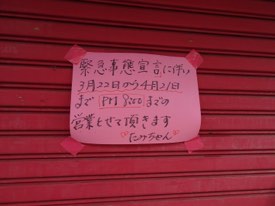 緊急事態宣言に伴い
3月22日から4月21日
まで PM 8:00までの
営業とせて頂きます
にけちゃん